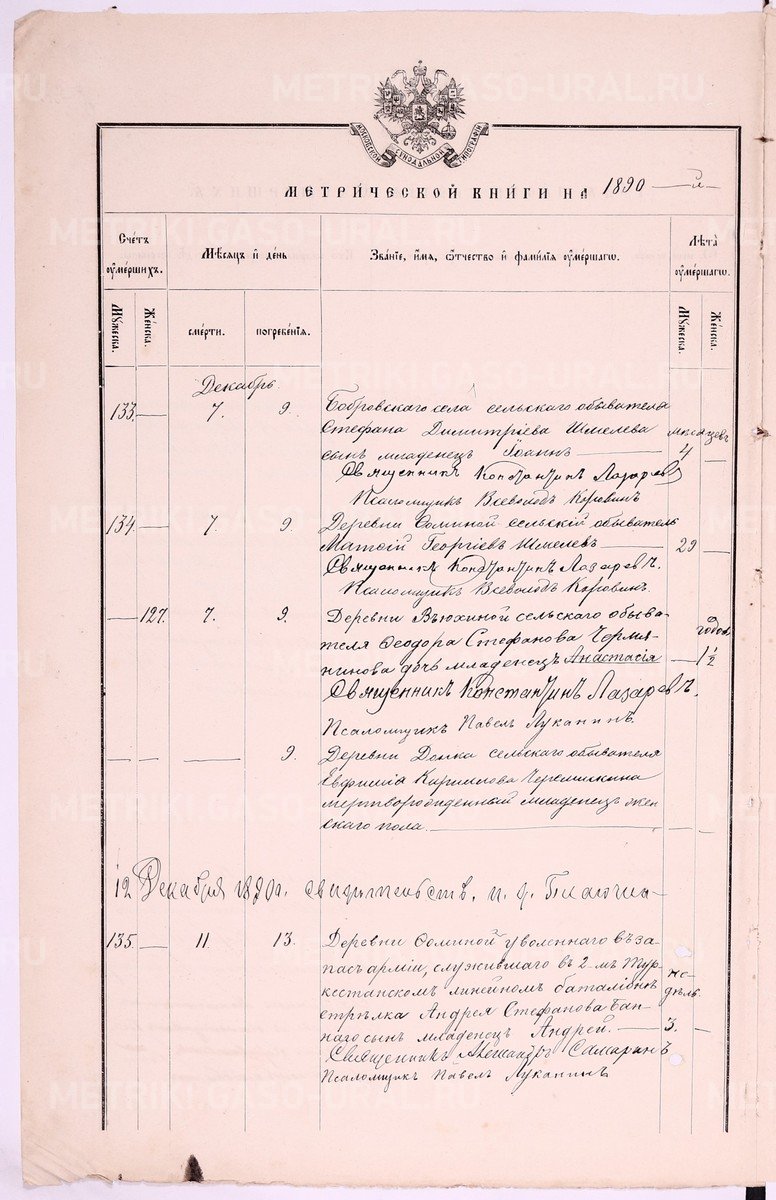 METRIKI.GASO-URAL.RU
МОСКОВСКОЙ СѴНОДАЛЬНОЙ ТИПОГРАФІИ
МЕТРИ́ЧЕСКОЙ КНИ́ГИ НА 1890-й
Сче́тъ ᲂу҆ме́ршихъ.
Мѣ́сяцъ и҆ де́нь
Зва́нїе, и҆́мѧ, ѻ҆́тчество и҆ фамилїѧ ᲂу҆ме́ршагѡ.
Лѣ́та ᲂу҆ме́ршагѡ.
Мꙋ́жеска. Же́нска.
сме́рти. погребе́нїѧ.
Мꙋ́жеска. Же́нска.
Декабрь.
133. — 7. 9. Бобровскаго села сельскаго обывателя
Стефана Димитріева Шмелева мѣсяцевъ
сынъ младенецъ Іоаннъ — 4 —
Священникъ Константинъ Лазаревъ
Псаломщикъ Всеволодъ Коровинъ
134. — 7. 9. Деревни Ѳоминой сельскій обыватель
Матѳій Георгіевъ Шмелевъ — 29 —
Священникъ Константинъ Лазаревъ.
Псаломщикъ Всеволодъ Коровинъ.
— 127. 7. 9. Деревни Вьюхиной сельскаго обыва-
теля Ѳеодора Стефанова Чермя- годов.
нинова дочь младенецъ Анастасія — 1½
Священникъ Константинъ Лазаревъ.
Псаломщикъ Павелъ Луканинъ.
— — — 9. Деревни сельскаго обывателя
Евфимія Черемискина
мертворожденный младенецъ жен
скаго пола. — — —
12 Декабря 1890г. свидѣтельств. и. д.
135. — 11. 13. Деревни Ѳоминой уволеннаго въ за
пасъ арміи, служившаго въ 2-мъ Тур-
кестанскомъ линейномъ баталіонѣ не-
стрѣлка Андрея Стефанова Бан- дѣль.
наго сынъ младенецъ Андрей. — 3. —
Священникъ Александръ Самаринъ
Псаломщикъ Павелъ Луканинъ